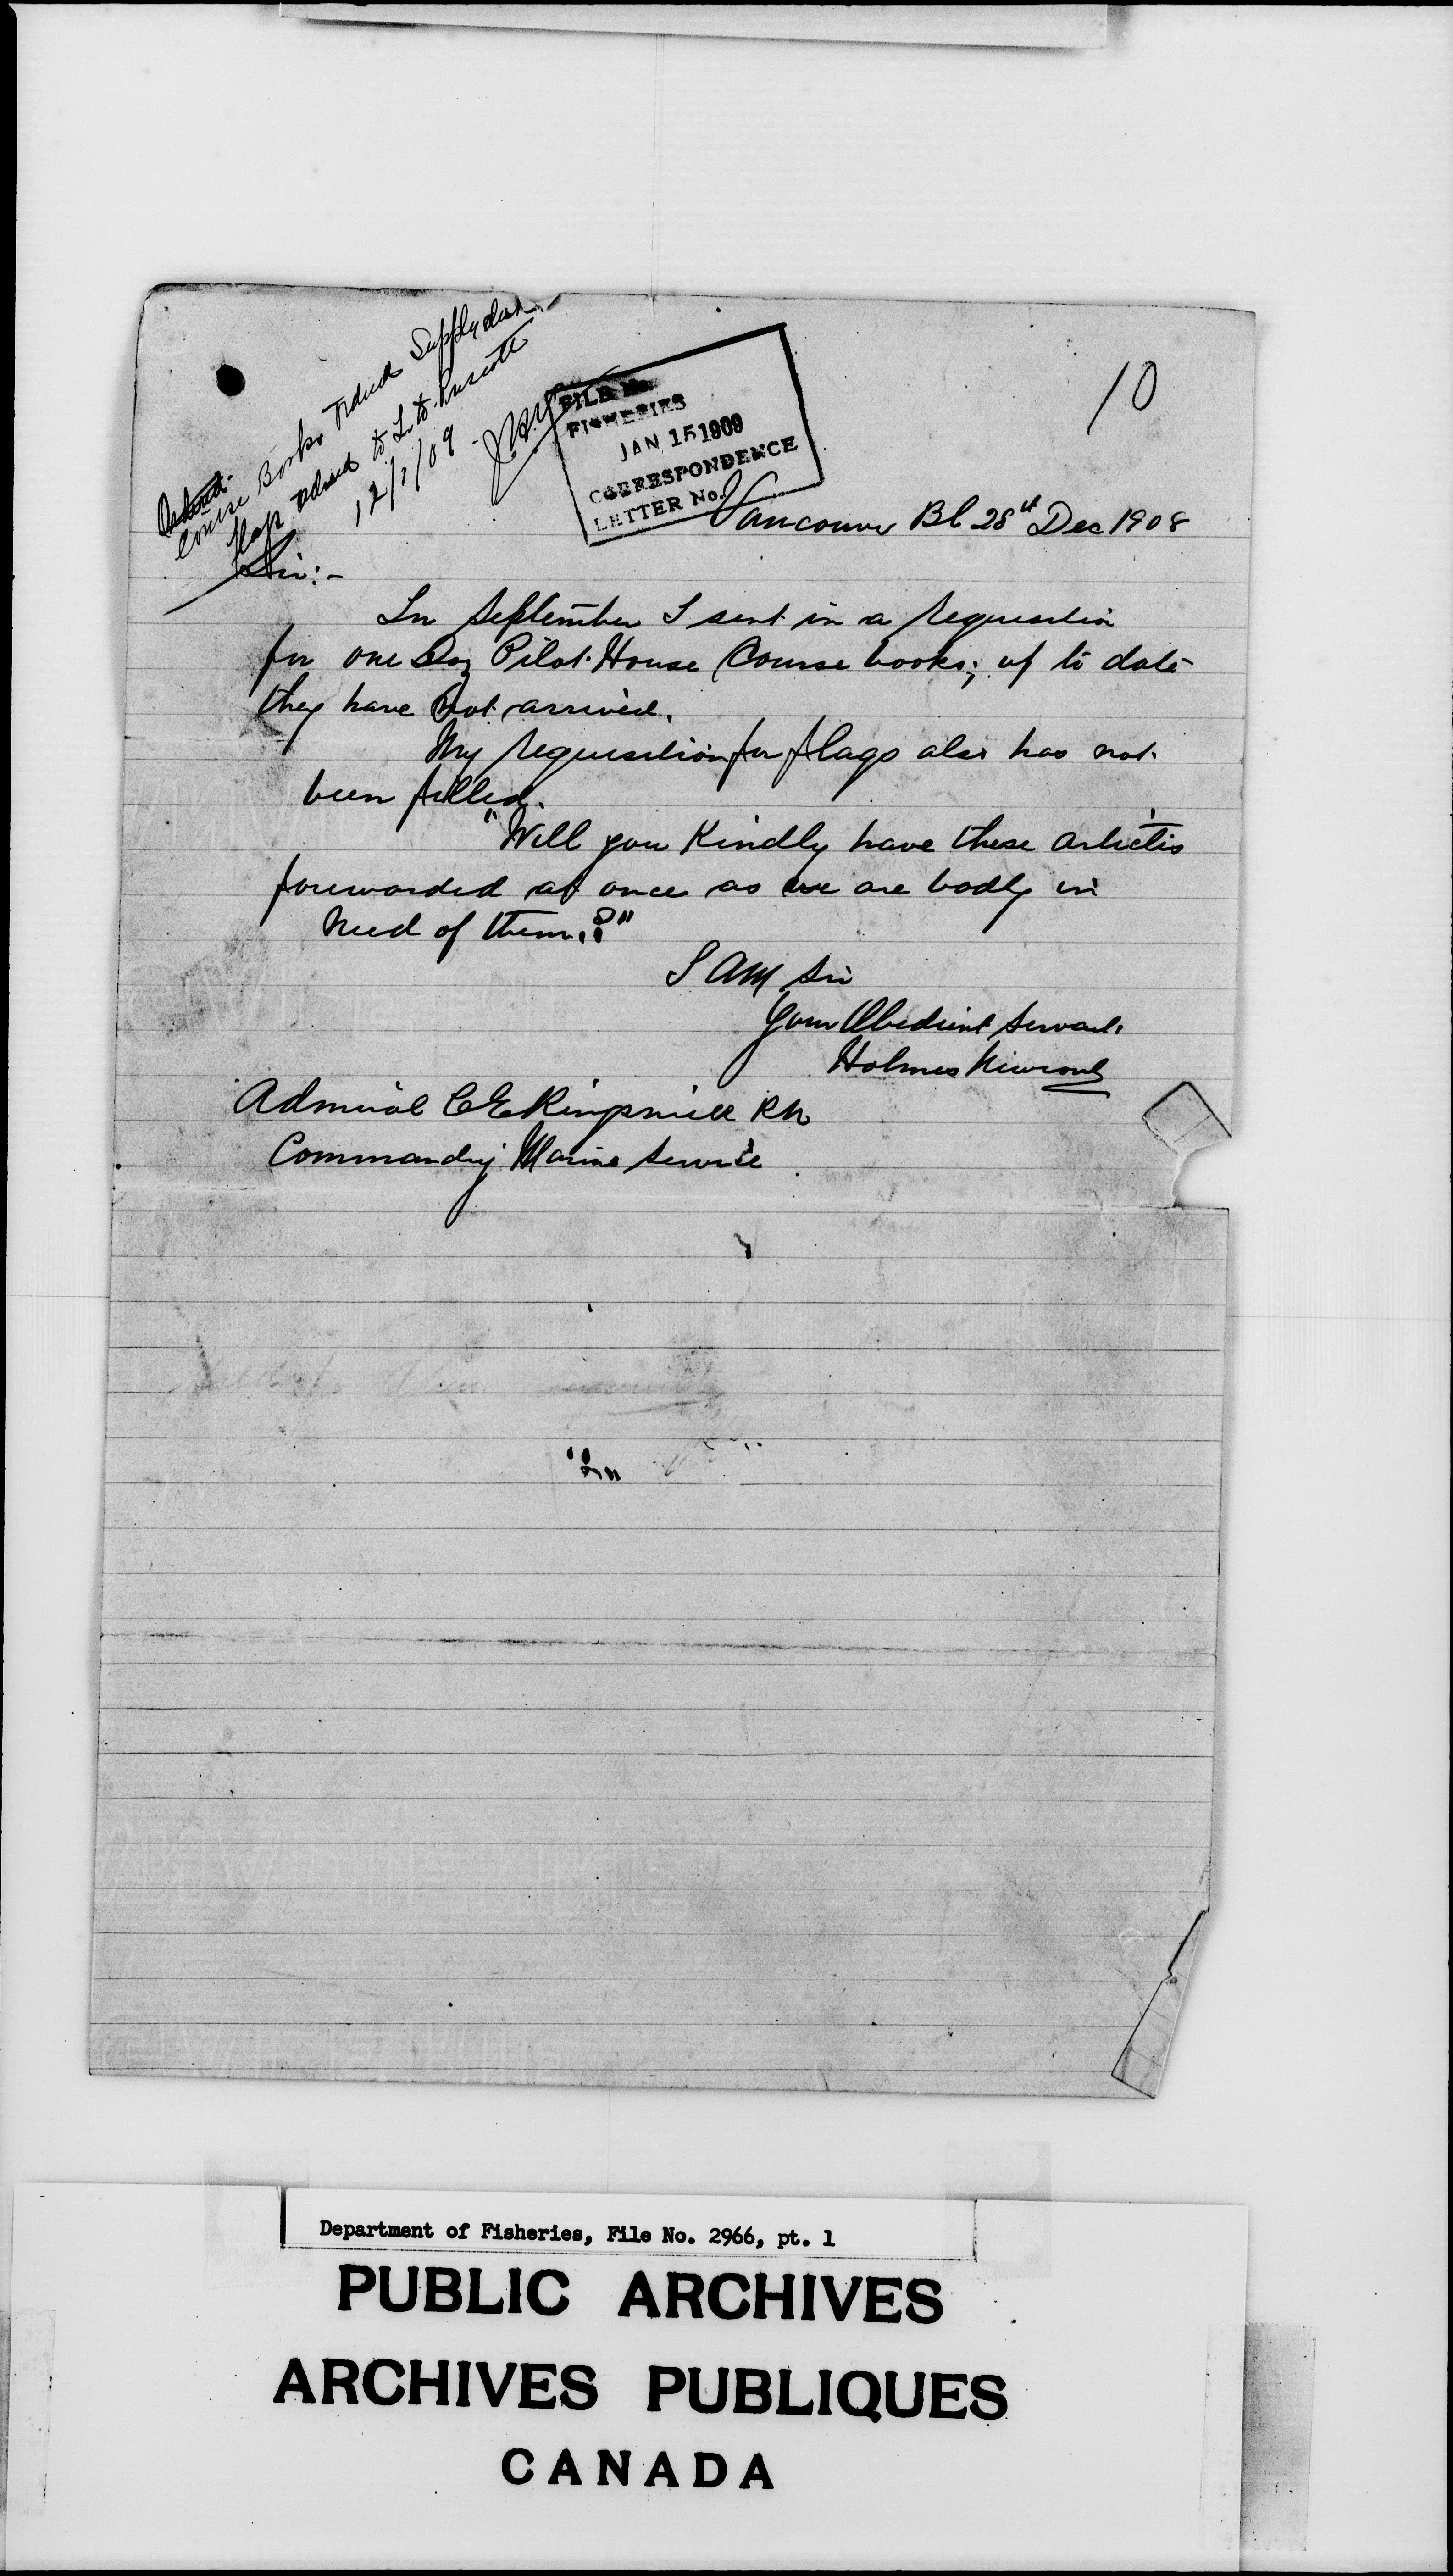 Course Books ordered Supply dest
flags ordered to L. to Prescott
12/1/09
FILE No.
FISHERIES
JAN 15 1909
CORRESPONDENCE
LETTER No.
10
Vancouver BC 28th Dec 1908
Sir:-
In September I sent in a requisition
for one Doz Pilot House Course books; up to date
they have not arrived.
My requisition for flags also has not
been filled.
"Will you Kindly have these articles
forewarded at once as we are badly in
need of them.?"
I am Sir
Your Obedient Servant.
Holmes Newcomb
Admiral C E Kingsmill RN
Commanding Marine Service
"In
Department of Fisheries, File No. 2966, pt. 1
PUBLIC ARCHIVES
ARCHIVES PUBLIQUES
CANADA